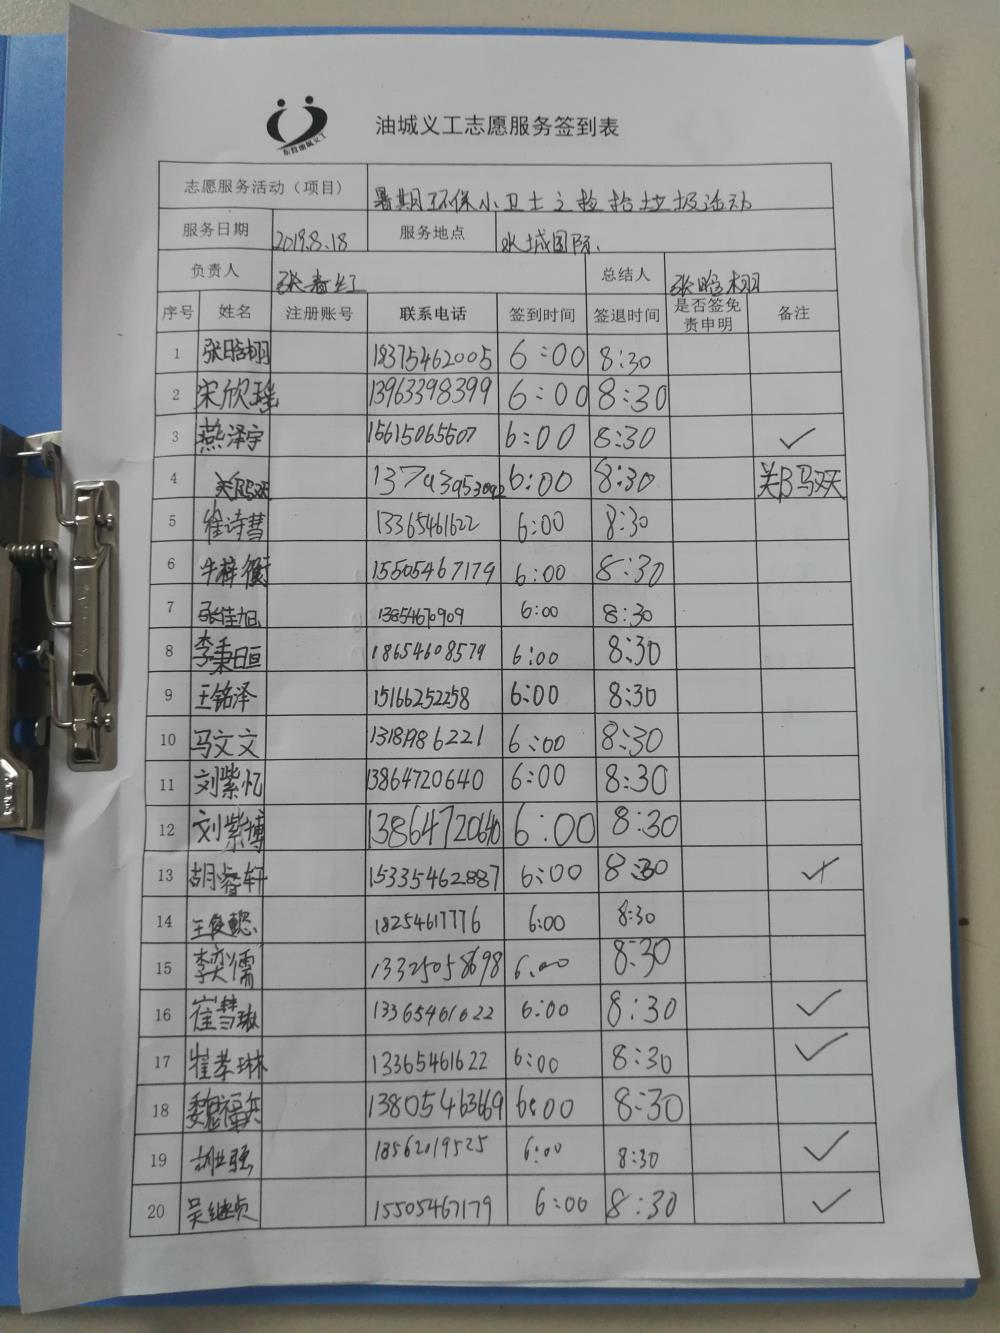 油城义工志愿服务签到表
志愿服务活动（项目） 暑期环保小卫士之捡拾垃圾活动
服务日期 2019.8.18 服务地点 水城国际、
负责人 张春红 总结人 张晗栩
序号 姓名 注册账号 联系电话 签到时间 签退时间 是否签免责申明 备注
1 张晗栩 18375462005 6:00 8:30
2 宋欣瑶 13963398399 6:00 8:30
3 燕泽宇 15615065507 6:00 8:30 ✓
4 13793953092 6:00 8:30
5 崔诗彗 13365461622 6:00 8:30
6 牛梓衡 15505467179 6:00 8:30
7 张佳旭 13854670909 6:00 8:30
8 李秉晅 18654608579 6:00 8:30
9 王铭泽 15166252258 6:00 8:30
10 马文文 13181986221 6:00 8:30
11 刘紫忆 13864720640 6:00 8:30
12 刘紫博 13864720640 6:00 8:30
13 胡睿轩 15335462887 6:00 8:30 ✓
14 王俊懿 18254617776 6:00 8:30
15 李奕儒 13325058698 6:00 8:30
16 崔彗琳 13365461622 6:00 8:30 ✓
17 崔孝琳 13365461622 6:00 8:30 ✓
18 魏福兵 13805463669 6:00 8:30
19 胡世强 18562019525 6:00 8:30 ✓
20 吴继贞 15505467179 6:00 8:30 ✓